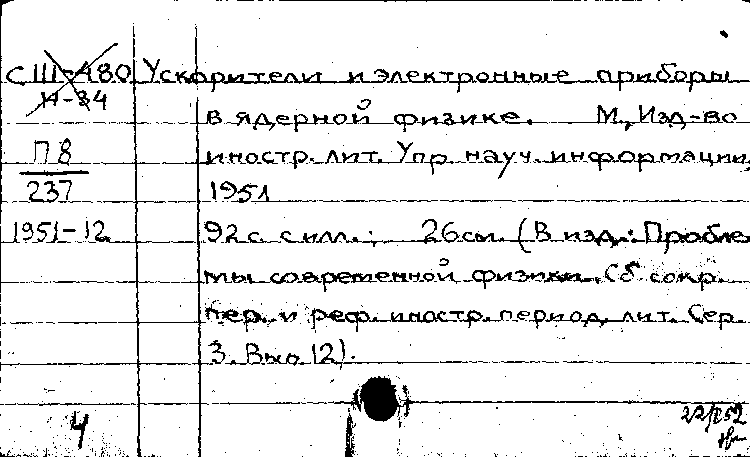 СШ-480 Ускорители и электронные приборы
И-34
в ядерной физике. М., Изд-во
П8 иностр. лит. Упр. науч. информации,
237 1951
1951-12 92 с. с илл.; 26 см. (В изд.: Пробле
мы современной физики. Сб. сокр.
пер. и реф. иностр. период. лит. Сер.
3. Вып. 12).
4